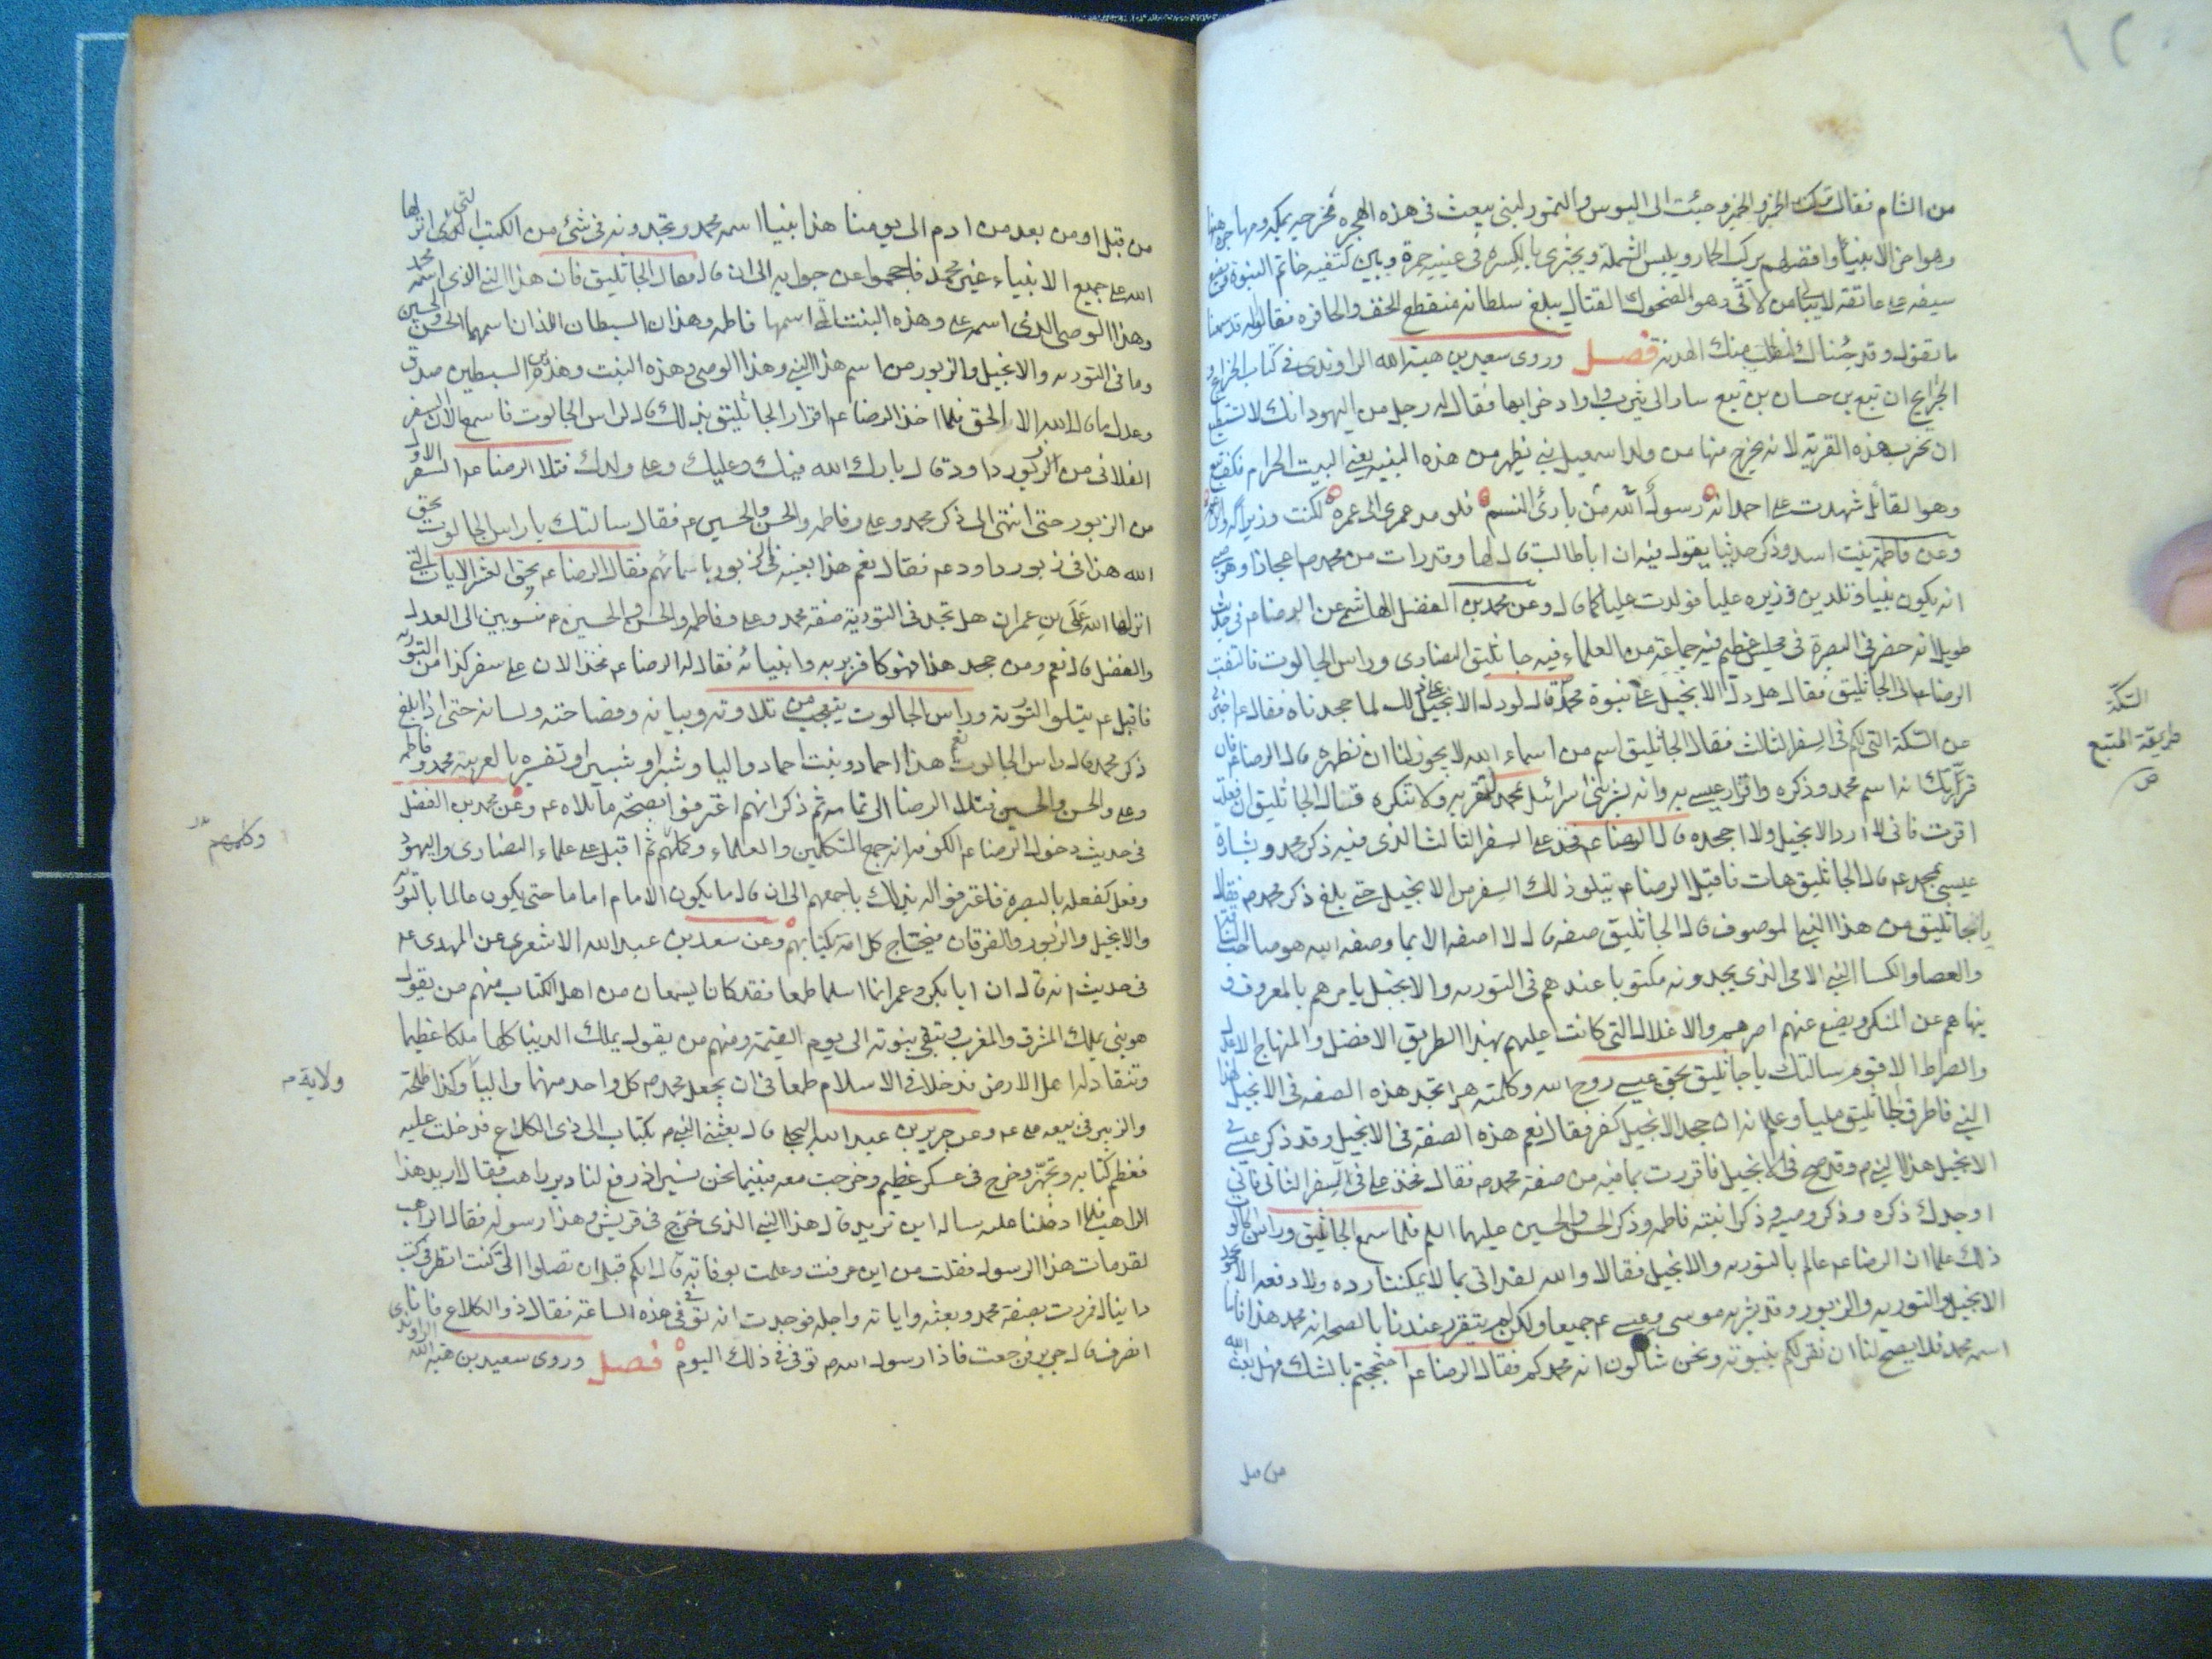 ١٢
من الشام فقال تركت الخمر والخمير وجئت الى البوس والتمور لنبي يبعث في هذه الهجره مخرجه بمكه ومهاجره هنا
وهو اخر الانبياء وافضلهم يركب الحمار ويلبس الشملة ويجتزى بالكسرة في عينيه حمرة وبين كتفيه خاتم النبوة يضع
سيفه على عاتقه لا يبالي من لاقى وهو الضحوك القتال يبلغ سلطانه منقطع الخف والحافر فقالوا له قد سمعنا
ما تقول وقد جئناك لنطلب منك الهدنة فصل وروى سعيد بن هبة الله الراوندي في كتاب الخرائج و
الجرايح ان تبع بن حسان بن تبع سار الى يثرب واراد خرابها فقال له رجل من اليهود انك لا تستطيع
ان تخرب هذه القرية لانه يخرج منها من ولد اسمعيل نبي يظهر من هذه البنيه يعني البيت الحرام فكف تبع
وهو القائل شهدت على احمد انه رسول الله من بارئ النسم فلو مد عمري الى عمره لكنت وزيرا له وابن عم
وعن فاطمة بنت اسد وذكر حديثا يقول فيه ان اباطالب قال لها وقد رات من محمد ص اعجازا وهو صبي
انه يكون نبيا وتلدين وزيره عليا فولدت عليا كما قال وعن محمد بن الفضل الهاشمي عن الرضا ع في حديث
طويل انه حضر في البصرة في مجلس عظيم فيه جماعة من العلماء فيه جاثليق النصارى وراس الجالوت فالتفت
الرضا ع الى الجاثليق فقال هل دل الانجيل على نبوة محمد قال لو دل الانجيل على ذلك لما جحدناه فقال ع اخبرني
عن السكتة التي لكم في السفر الثالث فقال الجاثليق اسم من اسماء الله لا يجوز لنا ان نظهره قال الرضا ع فان
قررتك انه اسم محمد وذكره واقرار عيسى به وانه بشر بني اسرائيل بمحمد لتقر به ولا تنكره قال الجاثليق ان فعلت
اقررت فاني لا ارد الانجيل ولا اجحده قال الرضا ع فخذ على السفر الثالث الذي فيه ذكر محمد وبشارة
عيسى بمحمد ع قال الجاثليق هات فاقبل الرضا ع يتلو ذلك السفر من الانجيل حتى بلغ ذكر محمد ص فقال
يا جاثليق من هذا النبي الموصوف قال الجاثليق صفه قال لا اصفه الا بما وصفه الله هو صاحب الناقة
والعصا والكسا النبي الامي الذي يجدونه مكتوبا عندهم في التوريه والانجيل يامرهم بالمعروف و
ينهاهم عن المنكر ويضع عنهم اصرهم والاغلال التي كانت عليهم يهدي الطريق الافضل والمنهاج الاعدل
والصراط الاقوم سالتك يا جاثليق بحق عيسى روح الله وكلمته هل تجد هذه الصفه في الانجيل لهذا
النبي فاطرق الجاثليق مليا وعلم انه ان جحد الانجيل كفر فقال نعم هذه الصفة في الانجيل وقد ذكر عيسى في
الانجيل هذا النبي م وقد صح في الانجيل فاقررت بما فيه من صفة محمد ص فقال فخذ على في السفر الثاني فاني
اوجدك ذكره وذكر وصيه وذكر ابنته فاطمه وذكر الحسن والحسين عليهما السلم فلما سمع الجاثليق وراس الجالوت
ذلك علما ان الرضا ع عالم بالتوريه والانجيل فقالا والله لقد اتى بما لا يمكننا رده ولا دفعه الا بجحود
الانجيل والتوريه والزبور وقد بشر به موسى وعيسى ع جميعا ولكن لم يتقرر عندنا بالصحه انه محمد هذا فاما
اسمه محمد فلا يصح لنا ان نقر لكم بنبوته ونحن شاكون انه محمدكم فقال الرضا ع احتججتم بالشك فهل بعث الله
السكتة
طريقة المتبع
ص
من قبل
من قبل او من بعد من ادم الى يومنا هذا نبيا اسمه محمد وتجدونه في شئ من الكتب التي انزلها
الله على جميع الانبياء غير محمد فاحجموا عن جوابه الى ان قال فقال الجاثليق فان هذا النبي الذي اسمه محمد
وهذا الوصي الذي اسمه على وهذه البنت التي اسمها فاطمه وهذان السبطان اللذان اسمهما الحسن والحسين
وما في التوريه والانجيل والزبور من اسم هذا النبي وهذا الوصي وهذه البنت وهذين السبطين صدق
وعدل ما قال الله الا الحق فلما اخذ الرضا ع اقرار الجاثليق بذلك قال لراس الجالوت فاسمع الان السفر
الفلاني من زبور داود قال بارك الله فيك وعليك وعلى ولدك فتلا الرضا ع السفر الاول
من الزبور حتى انتهى الى ذكر محمد وعلى وفاطمه والحسن والحسين ع فقال سالتك يا راس الجالوت بحق
الله هذا في زبور داود ع فقال نعم هذا بعينه في الزبور باسمائهم فقال الرضا ع بحق العشر الايات التي
انزلها الله على بن عمران هل تجد في التورية صفة محمد وعلى وفاطمه والحسن والحسين ع منسوبين الى العدل
والفضل قال نعم ومن جحد هذا فهو كافر بربه وانبيائه فقال له الرضا ع فخذ الان على سفر كذا من التوريه
فاقبل ع يتلو التورية وراس الجالوت يتعجب من تلاوته وبيانه وفصاحته ولسانه حتى اذا بلغ
ذكر محمد قال راس الجالوت نعم هذا احماد وبنت احماد واليا وشبر وشبير وتفسيره بالعربية محمد وفاطمه
وعلى والحسن والحسين فتلا الرضا الى تمامه ثم ذكر انهم اعترفوا بصحة ما تلاه ع وعن محمد بن الفضل
في حديث دخول الرضا ع الكوفه انه جمع المتكلمين والعلماء وكلمهم ثم اقبل على علماء النصارى واليهود
وفعل كفعله بالبصرة فاعترفوا له بذلك باجمعهم الى ان قال ما يكون الامام اماما حتى يكون عالما بالتوريه
والانجيل والزبور والفرقان فيحتاج كل امة بكتابهم وعن سعد بن عبد الله الاشعري عن المهدي ع
في حديث انه قال ان ابا بكر وعمر انما اسلما طمعا فقد كانا يسمعان من اهل الكتاب منهم من يقول
هو نبي يملك المشرق والمغرب وتبقى نبوته الى يوم القيمة ومنهم من يقول يملك الدنيا كلها ملكا عظيما
وتنقاد له اهل الارض فدخلا في الاسلام طمعا في ان يجعل محمد ص كل واحد منهما واليا وكذا طلحة
والزبير في بيعه على ع وعن جرير بن عبد الله البجلي قال بعثني النبي م بكتاب الى ذي الكلاع فدخلت عليه
فعظم كتابه وتجهز وخرج في عسكر عظيم وخرجت معه فبينما نحن نسير اذ رفع لنا دير راهب فقال اريد هذا
الراهب فلما ادخلنا عليه ساله اين تريد قال هذا النبي الذي خرج في قريش وهذا رسوله فقال الراهب
لقد مات هذا الرسول فقلت من اين عرفت وعلمت بوفاته قال انكم قبل ان تصلوا الي كنت انظر في كتب
دانيال فمررت بصفة محمد وبعثه واياته واجله فوجدت انه توفى في هذه الساعة فقال ذو الكلاع فانا
انصرف قال جرير فرجعت فاذا رسول الله م توفى في ذلك اليوم فصل وروى سعيد بن هبة الله الراوندي
وكلمهم
ولاية م